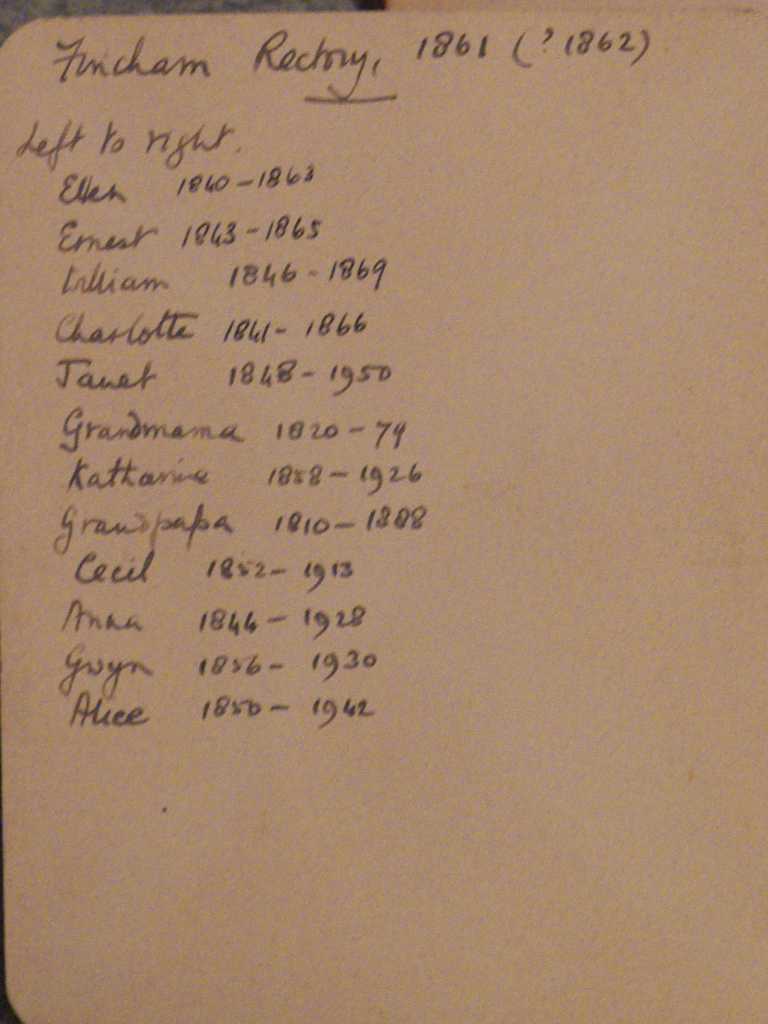 Fincham Rectory, 1861 (? 1862)
Left to right.
Ellen 1840-1863
Ernest 1843-1865
William 1846-1869
Charlotte 1841-1866
Janet 1848-1950
Grandmama 1820-79
Katharine 1858-1926
Grandpapa 1810-1888
Cecil 1852-1913
Anna 1844-1928
Gwyn 1856-1930
Alice 1850-1942